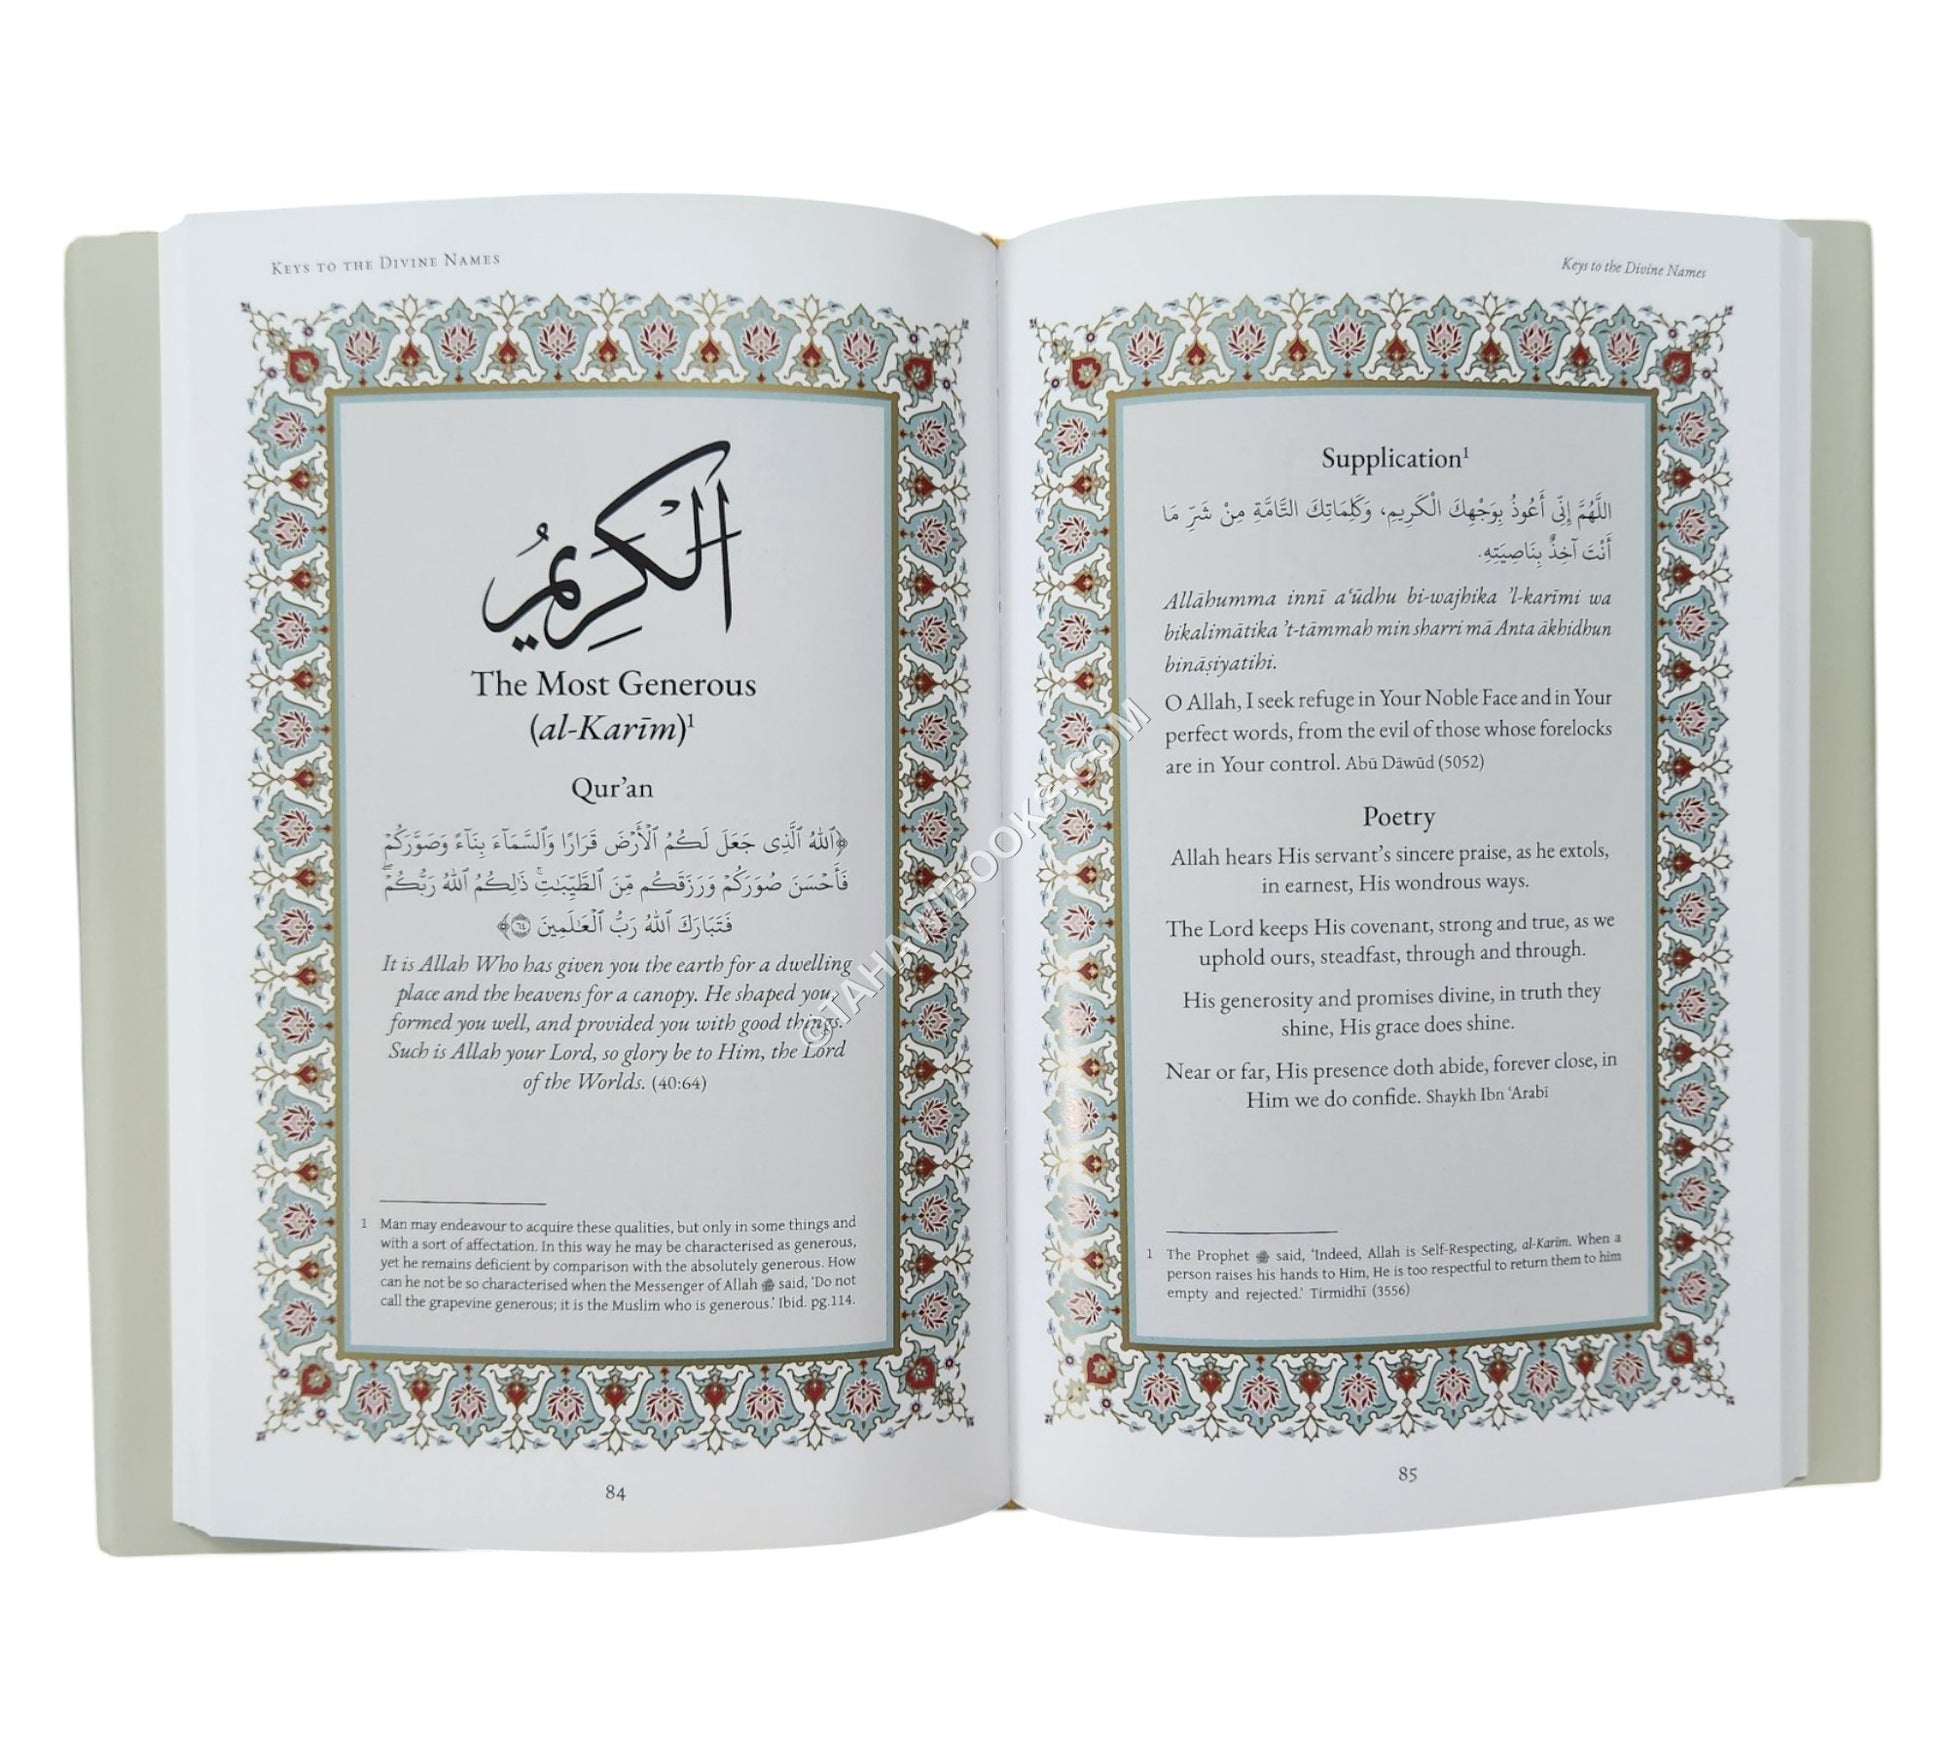 KEYS TO THE DIVINE NAMES
اَلْكَرِيمُ
The Most Generous
(al-Karīm)¹
Qur’an
﴿ٱللَّهُ ٱلَّذِى جَعَلَ لَكُمُ ٱلْأَرْضَ قَرَارًا وَٱلسَّمَآءَ بِنَآءً وَصَوَّرَكُمْ
فَأَحْسَنَ صُوَرَكُمْ وَرَزَقَكُم مِّنَ ٱلطَّيِّبَٰتِ ۚ ذَٰلِكُمُ ٱللَّهُ رَبُّكُمْ ۖ
فَتَبَارَكَ ٱللَّهُ رَبُّ ٱلْعَٰلَمِينَ ٦٤﴾
It is Allah Who has given you the earth for a dwelling
place and the heavens for a canopy. He shaped you,
formed you well, and provided you with good things.
Such is Allah your Lord, so glory be to Him, the Lord
of the Worlds. (40:64)
1 Man may endeavour to acquire these qualities, but only in some things and
with a sort of affectation. In this way he may be characterised as generous,
yet he remains deficient by comparison with the absolutely generous. How
can he not be so characterised when the Messenger of Allah ﷺ said, ‘Do not
call the grapevine generous; it is the Muslim who is generous.’ Ibid. pg.114.
84
Keys to the Divine Names
Supplication¹
اللَّهُمَّ إِنِّي أَعُوذُ بِوَجْهِكَ الْكَرِيمِ، وَكَلِمَاتِكَ التَّامَّةِ مِنْ شَرِّ مَا
أَنْتَ آخِذٌ بِنَاصِيَتِهِ.
Allāhumma innī a‘ūdhu bi-wajhika ’l-karīmi wa
bikalimātika ’t-tāmmah min sharri mā Anta ākhidhun
bināṣiyatihi.
O Allah, I seek refuge in Your Noble Face and in Your
perfect words, from the evil of those whose forelocks
are in Your control. Abū Dāwūd (5052)
Poetry
Allah hears His servant’s sincere praise, as he extols,
in earnest, His wondrous ways.
The Lord keeps His covenant, strong and true, as we
uphold ours, steadfast, through and through.
His generosity and promises divine, in truth they
shine, His grace does shine.
Near or far, His presence doth abide, forever close, in
Him we do confide. Shaykh Ibn ‘Arabī
1 The Prophet ﷺ said, ‘Indeed, Allah is Self-Respecting, al-Karīm. When a
person raises his hands to Him, He is too respectful to return them to him
empty and rejected.’ Tirmidhī (3556)
85
©TAHAWIBOOKS.COM